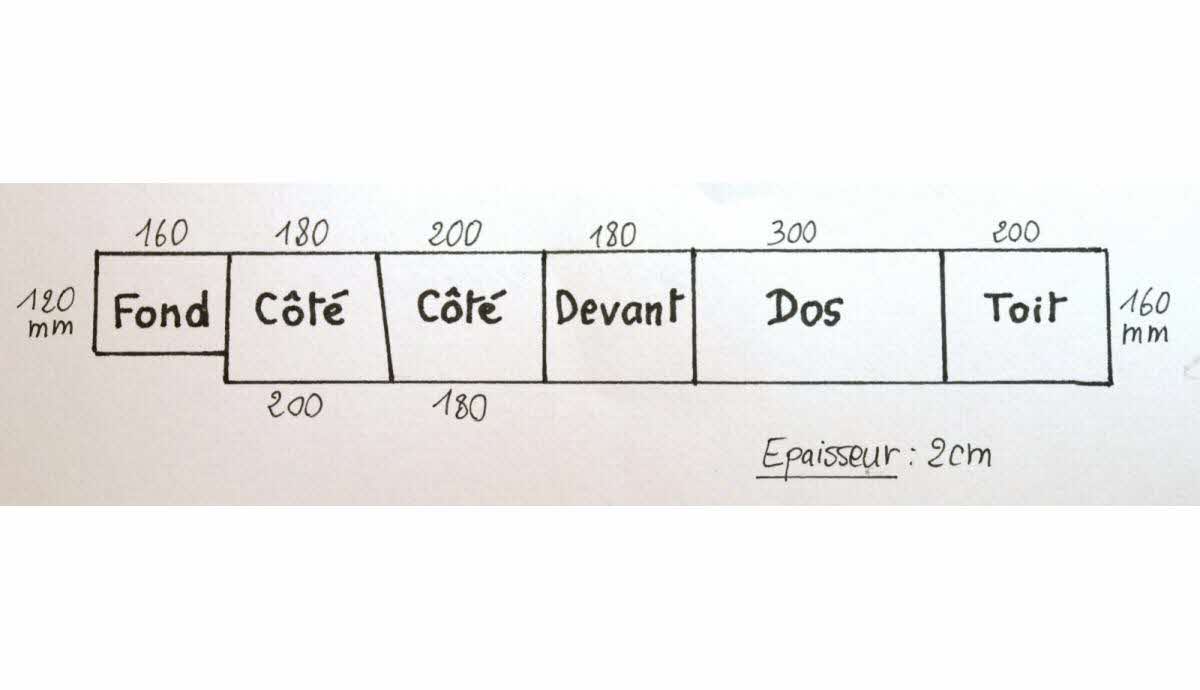 160 180 200 180 300 200
120 mm Fond Côté Côté Devant Dos Toit 160 mm
200 180
Epaisseur : 2cm